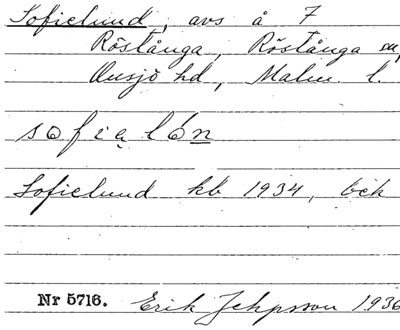 Sofielund, avs å 7
Röstånga, Röstånga sn,
Onsjö hd, Malm. l.
sofialón
Sofielund kb 1934, bck
Nr 5716. Erik Jeppsson 1936